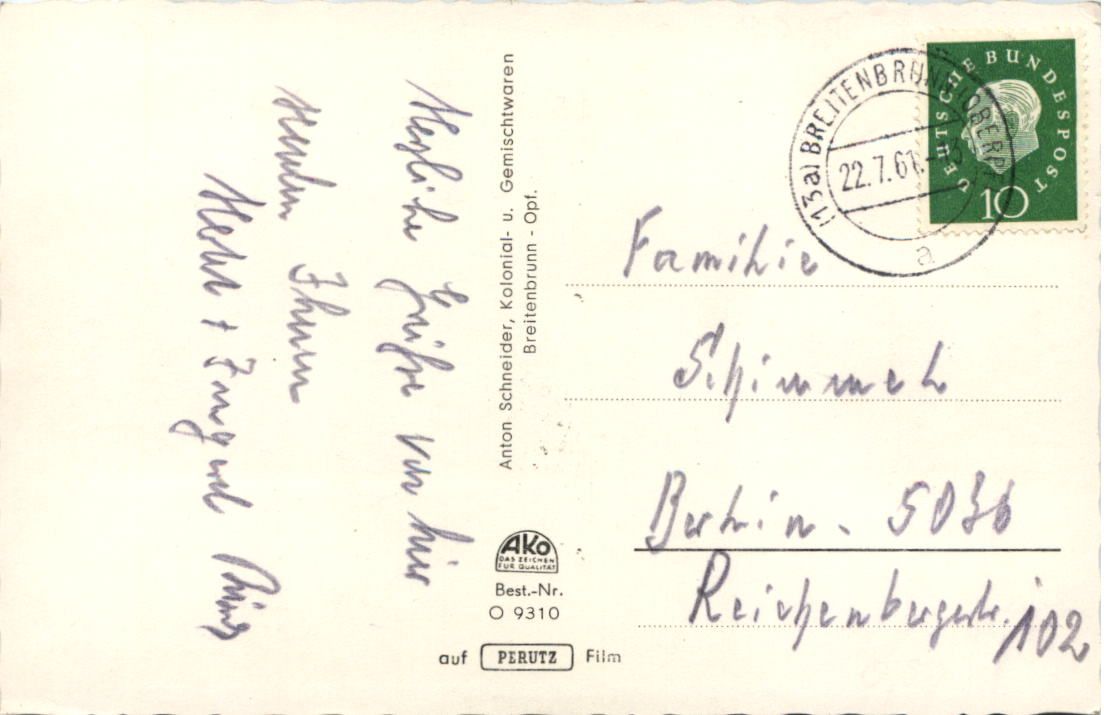 Herzliche Grüße von hier
senden Ihnen
Ingrid
Anton Schneider, Kolonial- u. Gemischtwaren
Breitenbrunn - Opf.
AKO
DAS ZEICHEN
FÜR QUALITÄT
Best.-Nr.
O 9310
auf PERUTZ Film
(13a) BREITENBRUNN (OBERPF
22.7.61.-13
a
DEUTSCHE BUNDESPOST
10
Familie
Schimmel
Berlin - SO 36
Reichenbergerstr. 102